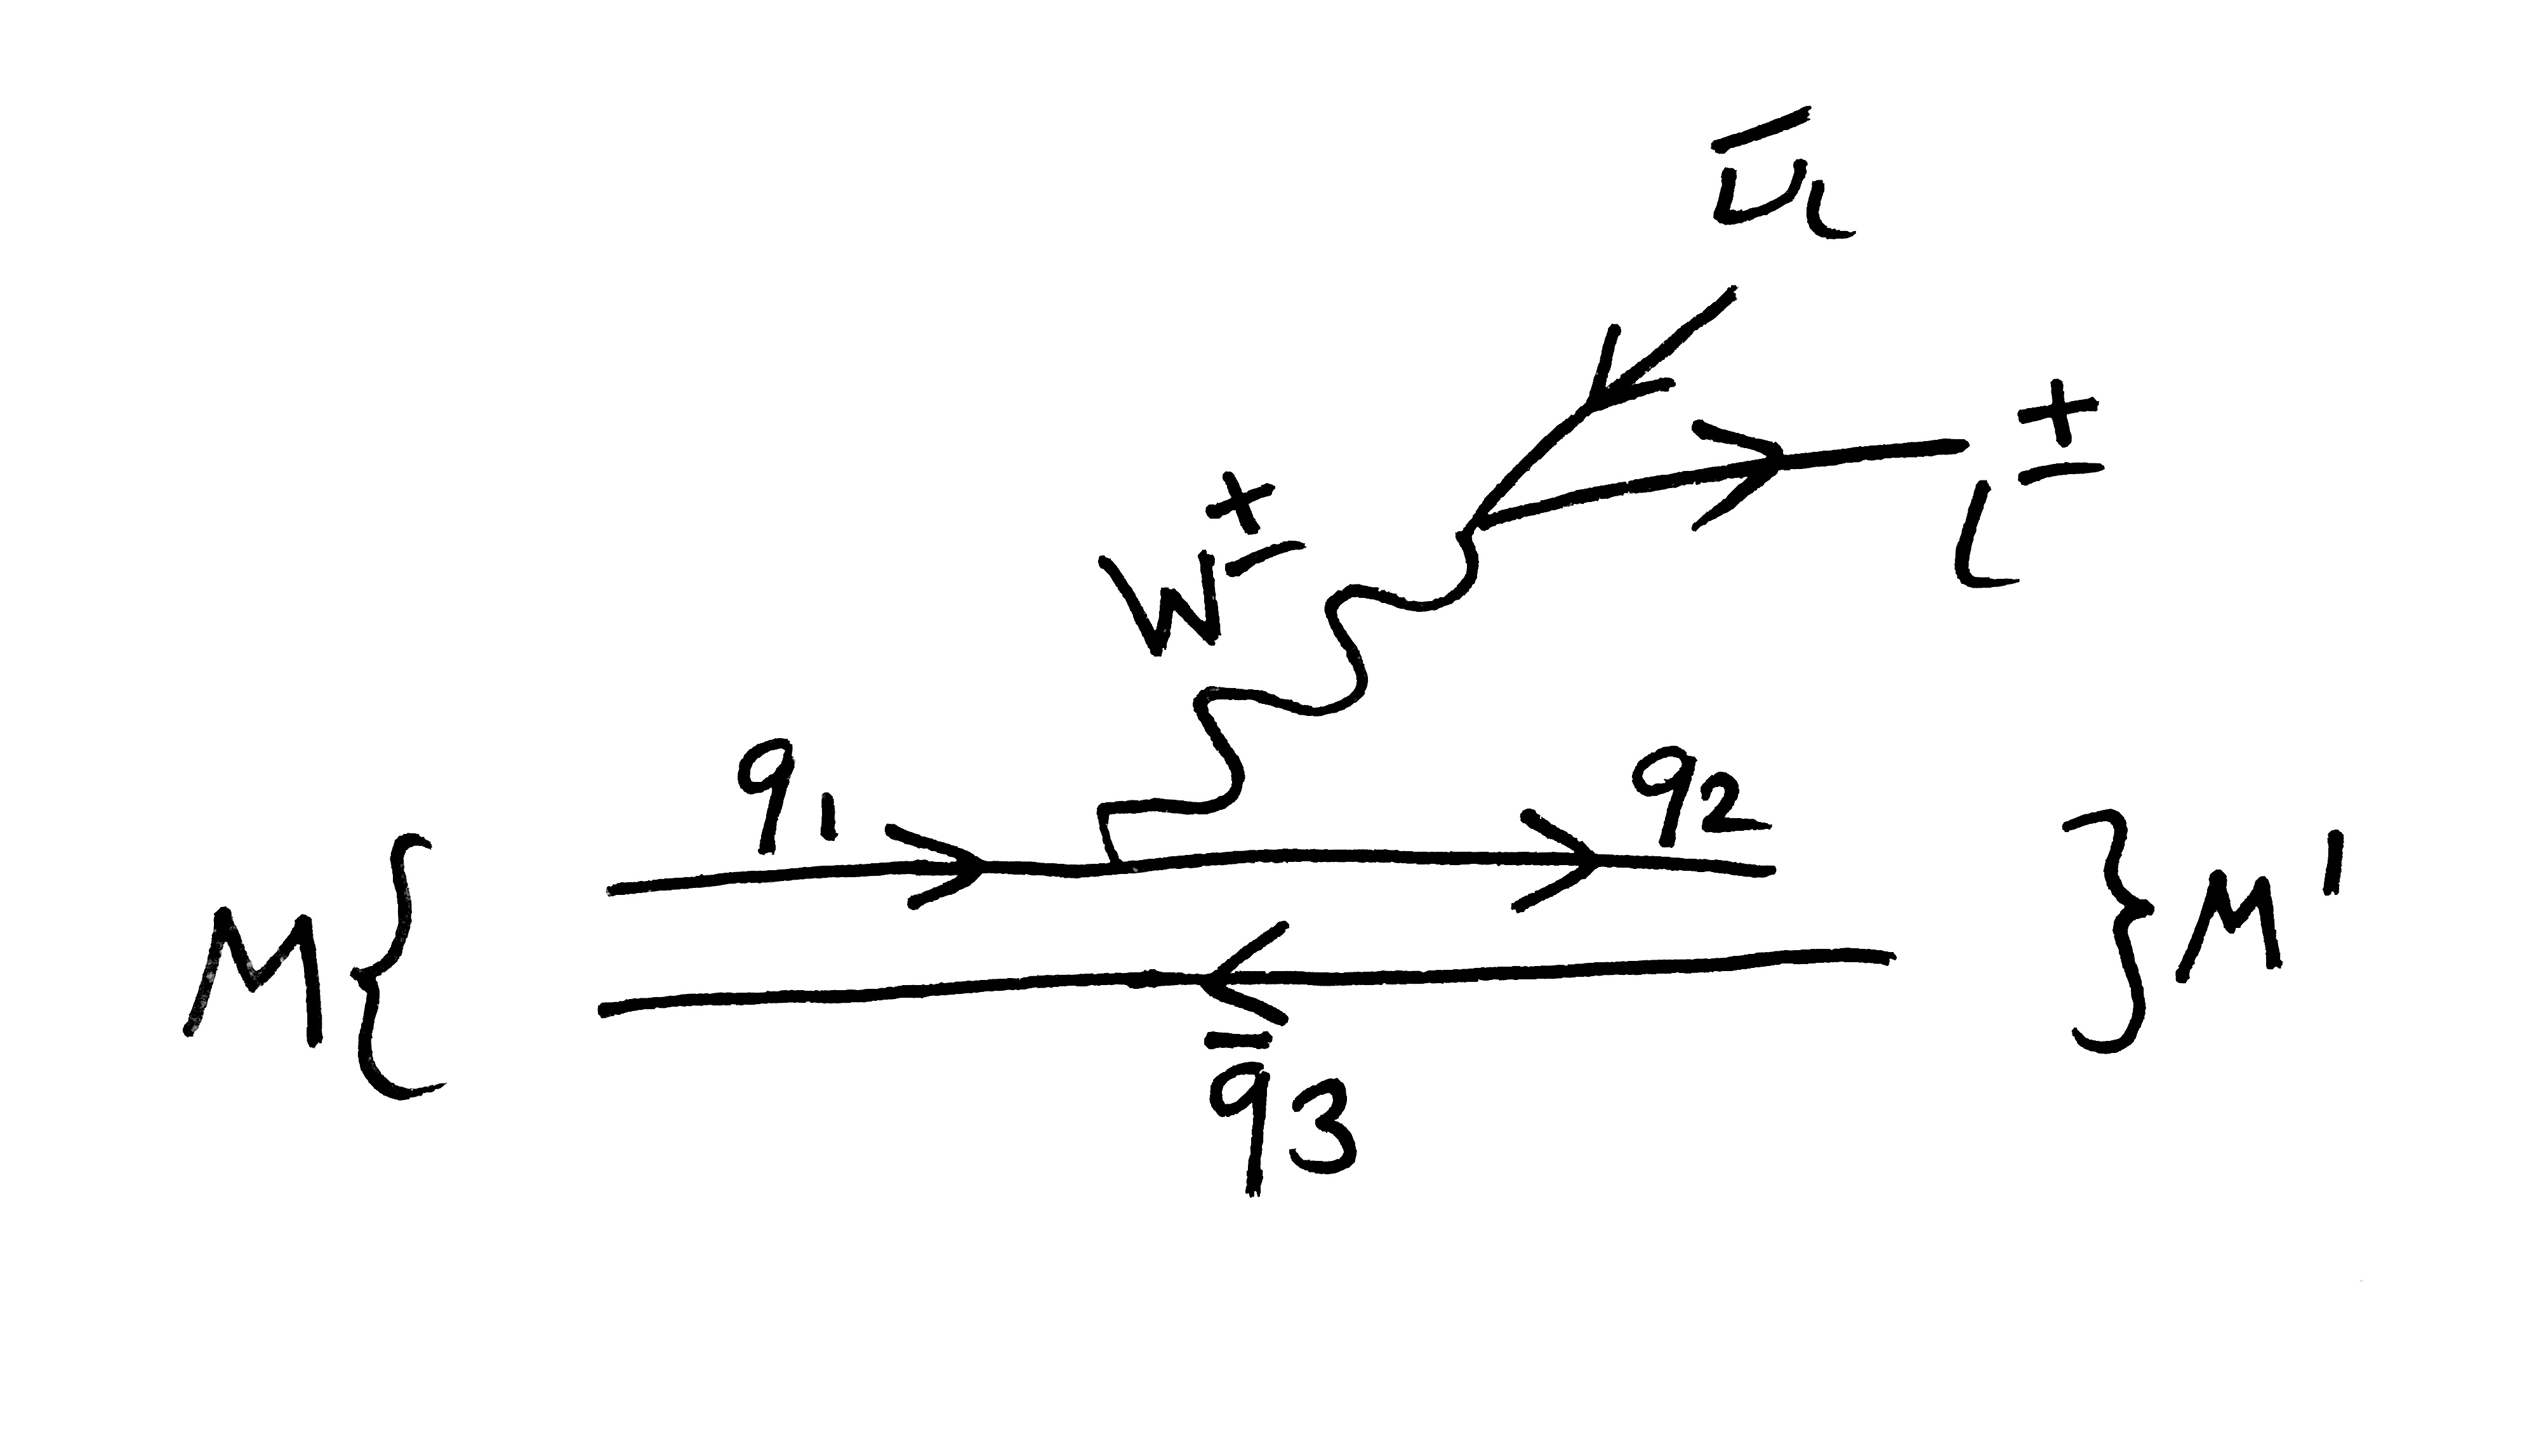 ν̄ₗ
l±
W±
q₁
q₂
M{
}M'
q̄₃